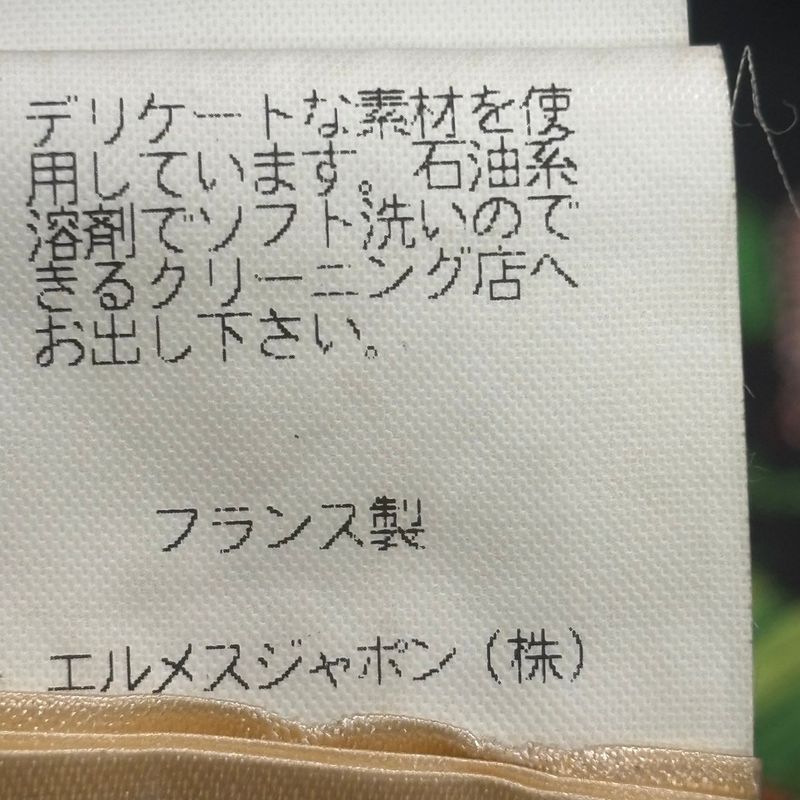 デリケートな素材を使
用しています。石油系
溶剤でソフト洗いので
きるクリーニング店へ
お出し下さい。
フランス製
エルメスジャポン（株）